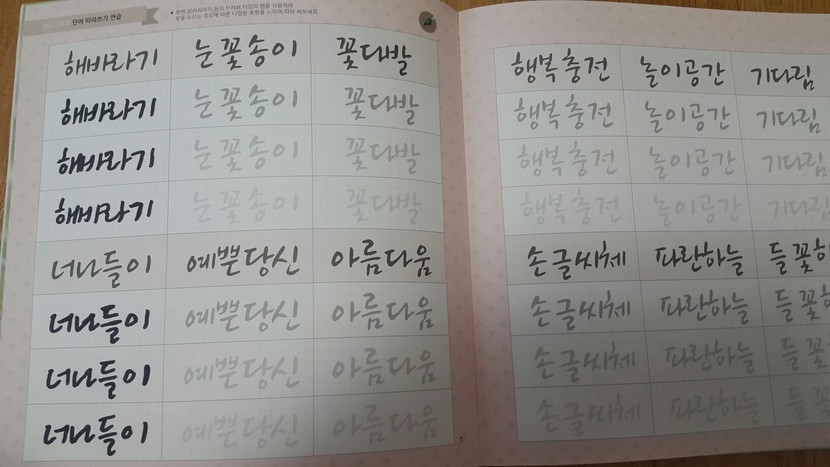 단어 따라쓰기 연습
해바라기 눈꽃송이 꽃다발
해바라기 눈꽃송이 꽃다발
해바라기 눈꽃송이 꽃다발
해바라기 눈꽃송이 꽃다발
너나들이 예쁜당신 아름다움
너나들이 예쁜당신 아름다움
너나들이 예쁜당신 아름다움
너나들이 예쁜당신 아름다움
행복충전 놀이공간 기다림
행복충전 놀이공간 기다림
행복충전 놀이공간 기다림
행복충전 놀이공간 기다림
손글씨체 파란하늘
손글씨체 파란하늘
손글씨체 파란하늘
손글씨체 파란하늘